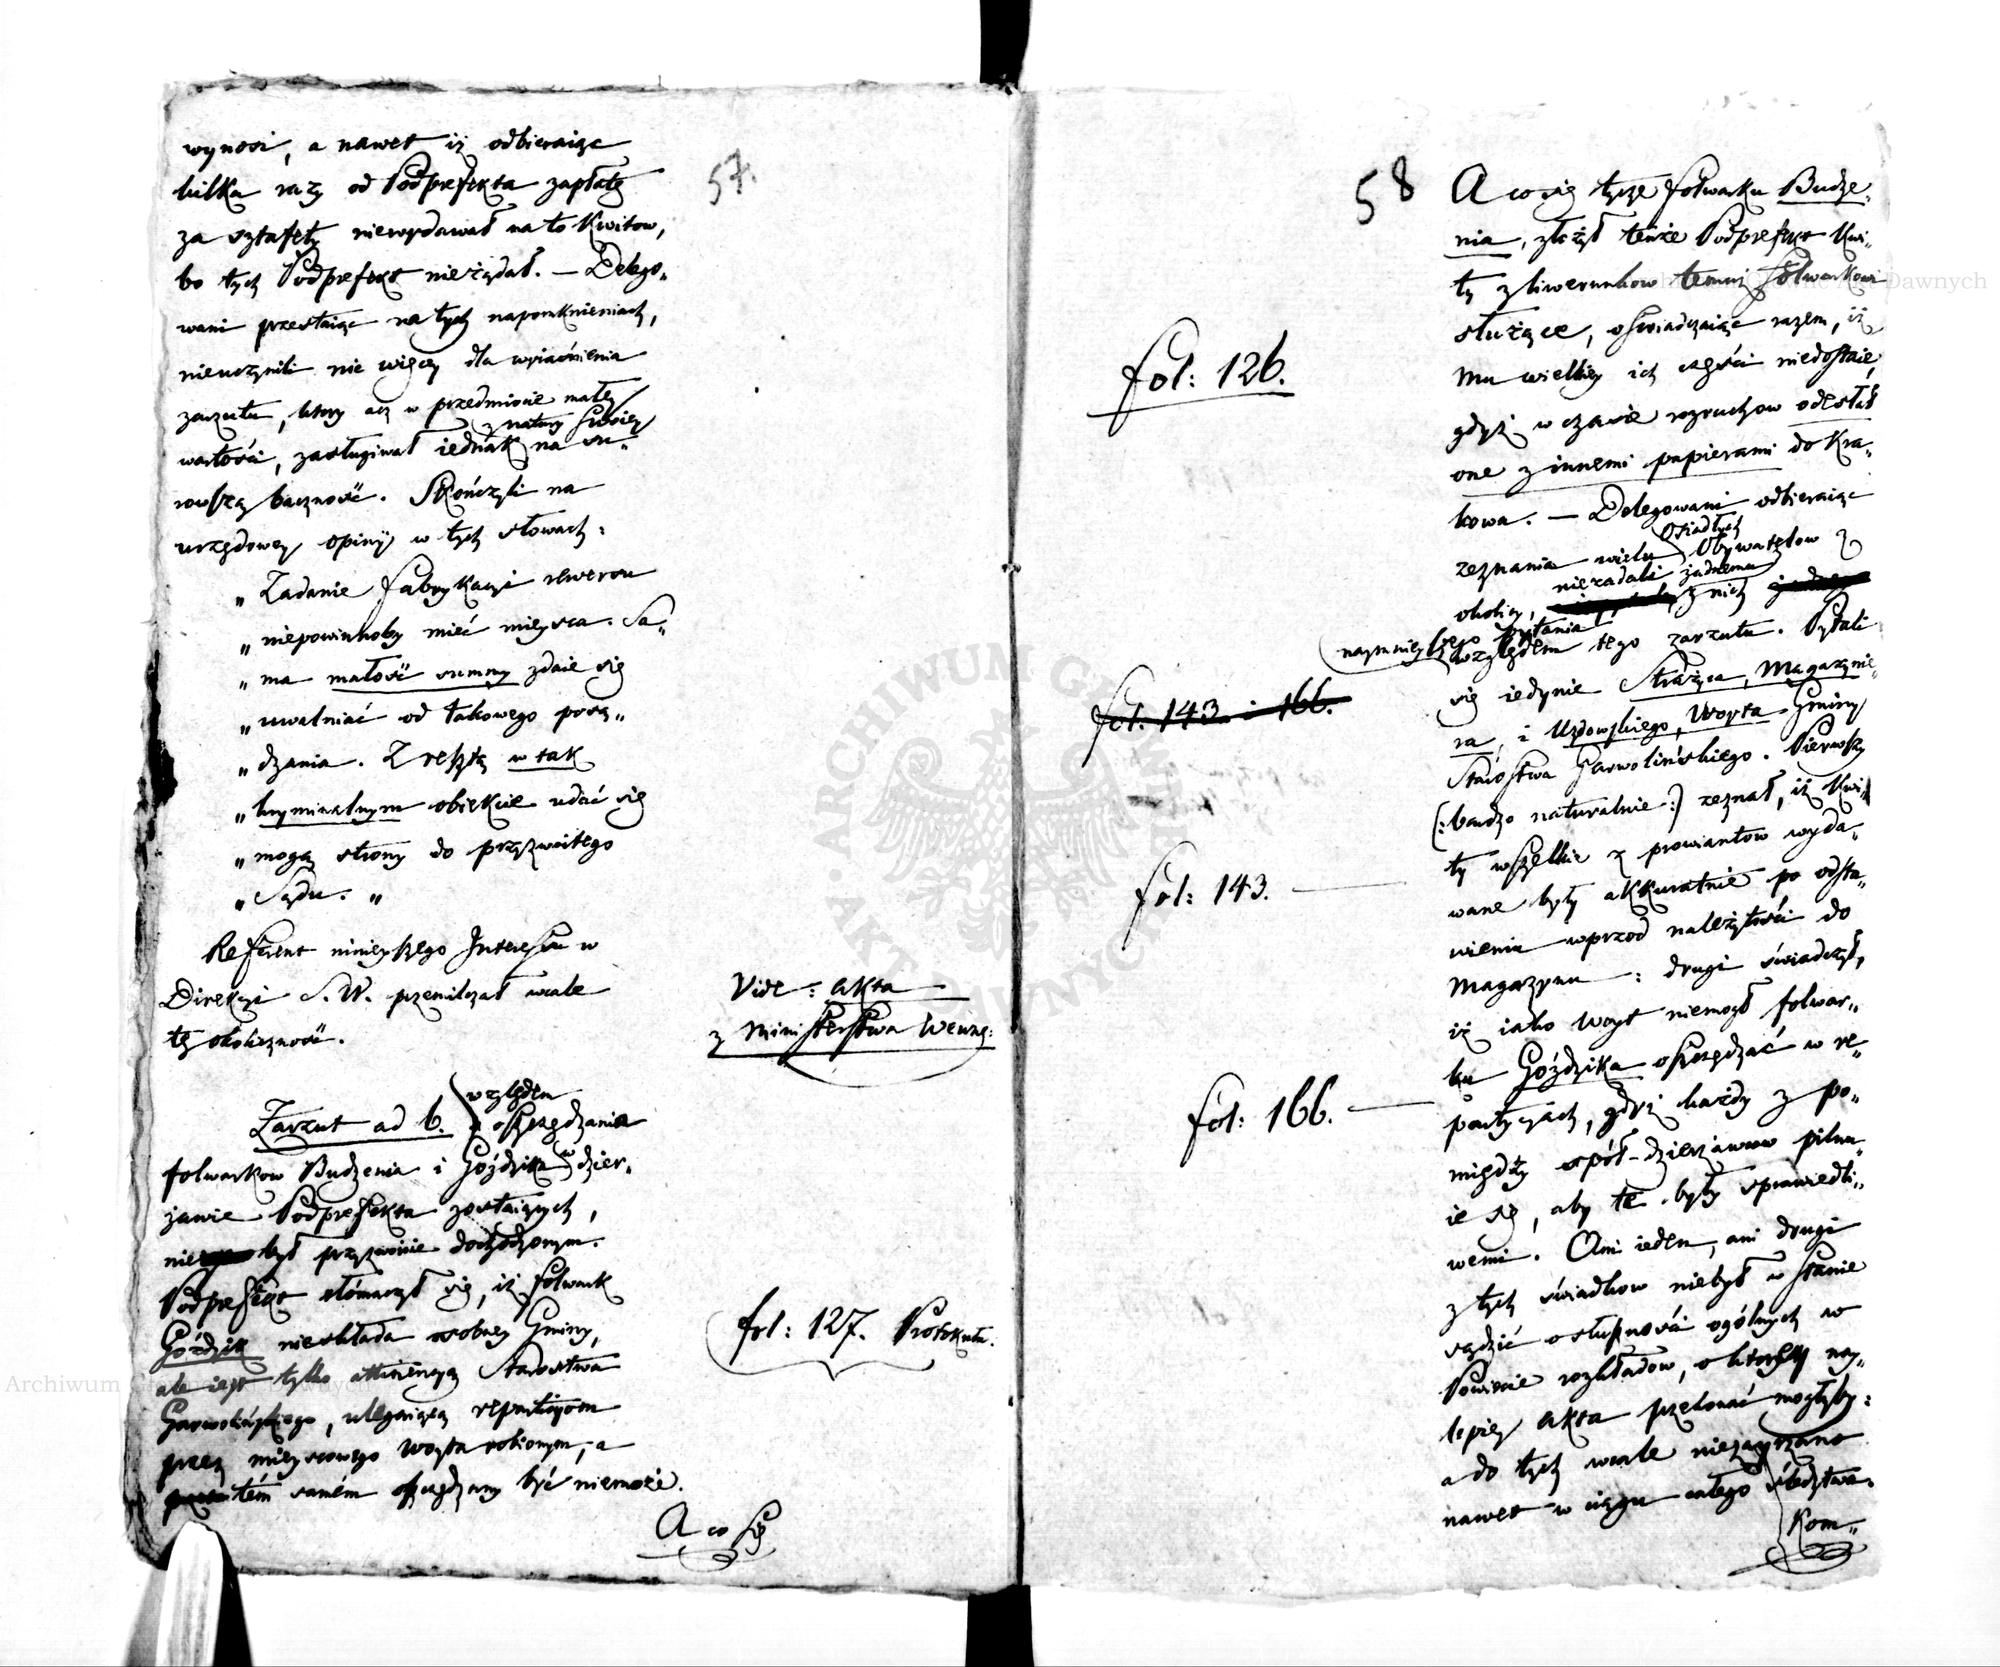 57.
wynosi, a nawet iż odbieraiąc
kilka razy od Podprefekta zapłatę
za sztafety niewydawał na to Kwitow,
bo tych Podprefekt nieżądał. — Delego„
wani przestaiąc na tych napomknieniach,
nieuczynili nic więcey dla wyiaśnienia
zarzutu, ktory acz w przedmiocie małey
z natury swoiey
wartości, zasługiwał iednak na su„
rowszą baczność. Skończyli na
urzędowey opinij w tych słowach:
„Zadanie fabrykacyi rewersu
„niepowinnoby mieć mieysca. Sa„
„ma małość summy zdaie się
„uwalniać od takowego posą„
„dzania. Zresztą w tak
„kryminalnym obiekcie udać się
„mogą strony do przyzwoitego
„Sądu. „
Referent ninieyszego Interessu w
Direkcyi S. W. przemilczał wcale
tę okoliczność.
Vide: akta
z Ministerstwa Wewnę:
względem
Zarzut ad 6. oszczędzania
folwarkow Budzenia i Goździka w dzier„
żawie Podprefekta zostaiących,
nie był przyzwoicie dochodzonym.
Podprefekt tłómaczył się, iż folwark
Goździk nieskłada osobney Gminy,
ale iest tylko attinencyą Starostwa
Garwolińskiego, ulegaiącą repartycyom
przez mieyscowego Woyta robionym, a
tém samém oszczędzany być niemoże.
fol: 127. Protokułu.
A co się
58
A co się tycze folwarku Budze„
nia, złożył tenże Podprefekt Kwi„
ty z liwerunkow temuż folwarkowi
służące, oświadczaiąc razem, iż
mu wielkiey ich części niedostaie,
gdyż w czasie rozruchow odesłał
one z innemi papierami do Kra„
kowa. — Delegowani odbieraiąc
osiadłych
zeznania wielu Obywatelow z
niezadali żadnemu
okolicy, z nich
naymnieyszego pytania
względem tego zarzutu. Pytali
się iedynie Strażyca, Magazynie„
ra, i Uzdowskiego, Woyta Gminy
Starostwa Garwolińskiego. Pierwszy
(:bardzo naturalnie:) zeznał, iż Kwi„
ty wszelkie z prowiantow wyda„
wane były akkuratnie po odsta„
wieniu wprzod należytości do
Magazynu: drugi świadczył,
iż iako Woyt niemogł folwar„
ku Goździka oszczędzać w re„
partycyach, gdyż każdy z po„
między spół-dzierżawcow pilnu„
ie się, aby te były sprawiedli„
wemi. Ani ieden, ani drugi
z tych świadkow niebył w stanie
sądzić o słupności ogólnych w
Powiecie rozkładow, o ktorych nay„
lepiey akta przekonać mogłyby:
a do tych wcale niezayrzano
nawet w ciągu całego śledztwa.
fol: 126.
fol: 143. i 166.
fol: 143.
fol: 166.
Kom„
ARCHIWUM GŁÓWNE AKT DAWNYCH